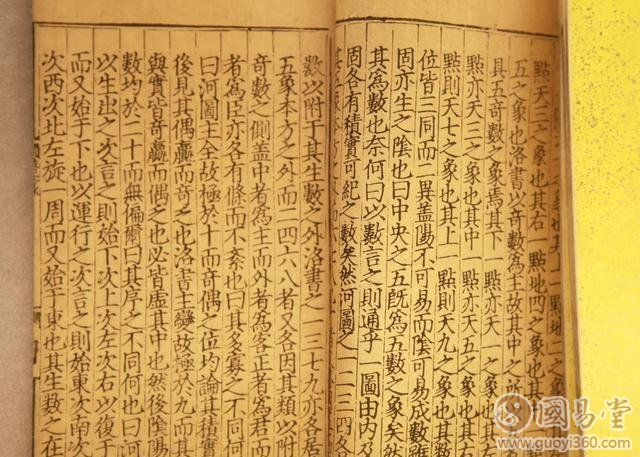 點天三之象也其右一點地四之象也其
五之象也洛書以奇數為主故其中之所
具五奇數之象焉其下一點亦天一之象也其
點亦天三之象也其中一點亦天五之象也其
點則天七之象也其上一點則天九之象也其
位皆三同而二異蓋陽不可易而陰可易成數雖
固亦生之陰也曰中央之五既為五數之象矣然
其為數也奈何曰以數言之則通乎一圖由內及
固各有積實可紀之數矣然河圖之一二三四各
其五象本方
數以附于其生數之外洛書之一三七九亦各居
五象本方之外而二四六八者又各因其類以附
奇數之側蓋中者為主而外者為客正者為君而
者為臣亦各有條而不紊也曰其多寡之不同何
曰河圖主全故極於十而奇偶之位均論其積實
後見其偶贏而奇乏也洛書主變故極於九而其
與實皆奇贏而偶乏也必皆虛其中也然後陰陽
數均於二十而無偏爾曰其序之不同何也曰河
以生出之次言之則始下次上次左次右以復于
而又始于下也以運行之次言之則始東次南次
次西次北左旋一周而又始于東也其生數之在
國易堂
www.guoyi360.com